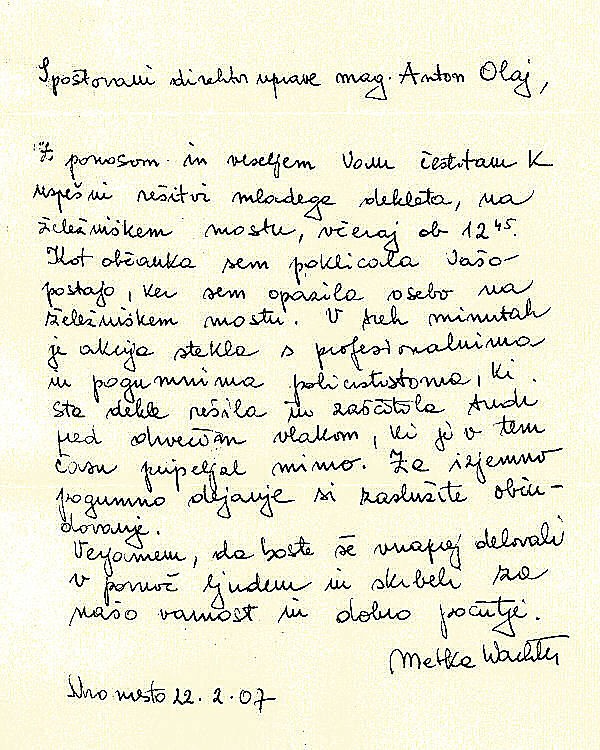 Spoštovani direktor uprave mag. Anton Olaj,
Z ponosom in veseljem Vam čestitam k
uspešni rešitvi mladega dekleta, na
železniškem mostu, včeraj ob 12⁴⁵.
Kot občanka sem poklicala Vašo
postajo, ker sem opazila osebo na
železniškem mostu. V treh minutah
je akcija stekla s profesionalnima
in pogumnima policistoma, ki
sta dekle rešila in zaščitila tudi
pred drvečim vlakom, ki je v tem
času pripeljal mimo. Za izjemno
pogumno dejanje si zaslužite obču-
dovanje.
Verjamem, da boste še vnaprej delovali
v pomoč ljudem in skrbeli za
našo varnost in dobro počutje.
Metka Wachter
Novo mesto 22. 2. 07